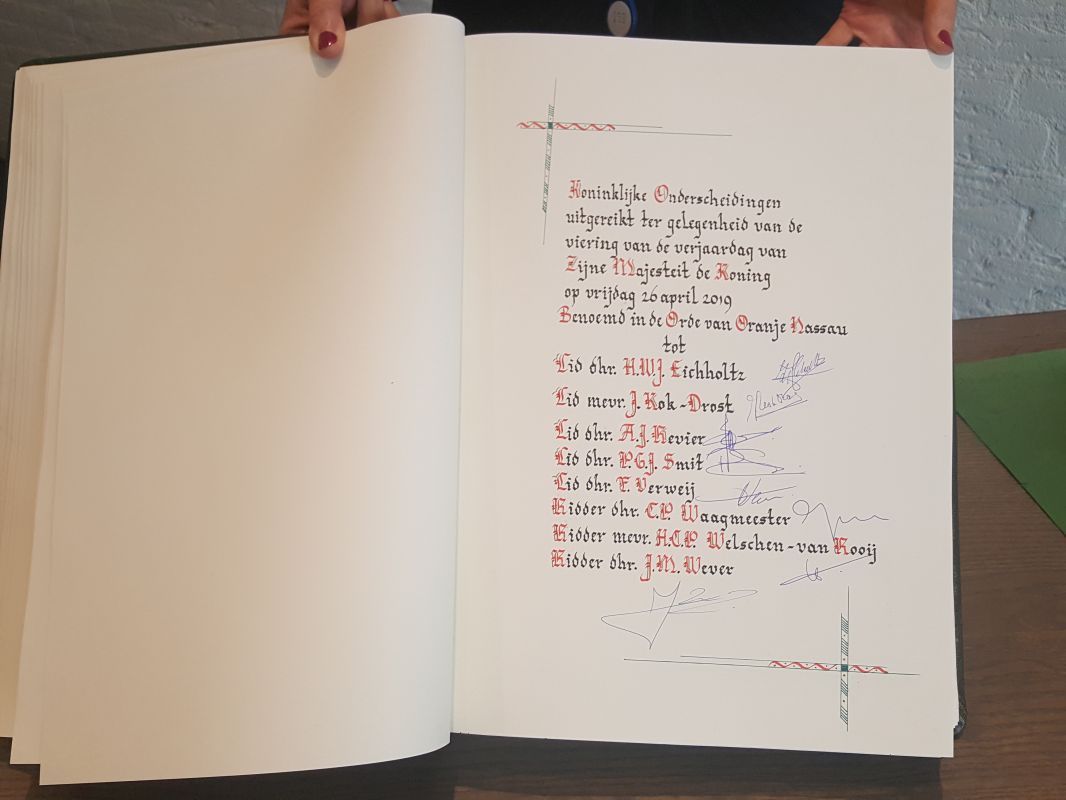 Koninklijke Onderscheidingen
uitgereikt ter gelegenheid van de
viering van de verjaardag van
Zijne Majesteit de Koning
op vrijdag 26 april 2019
Benoemd in de Orde van Oranje Nassau
tot
Lid dhr. H.W.J. Eichholtz
Lid mevr. J. Kok-Drost
Lid dhr. A.J. Revier
Lid dhr. P.G.J. Smit
Lid dhr. F. Verweij
Ridder dhr. C.P. Waagmeester
Ridder mevr. H.C.P. Welschen-van Rooij
Ridder dhr. J.M. Wever